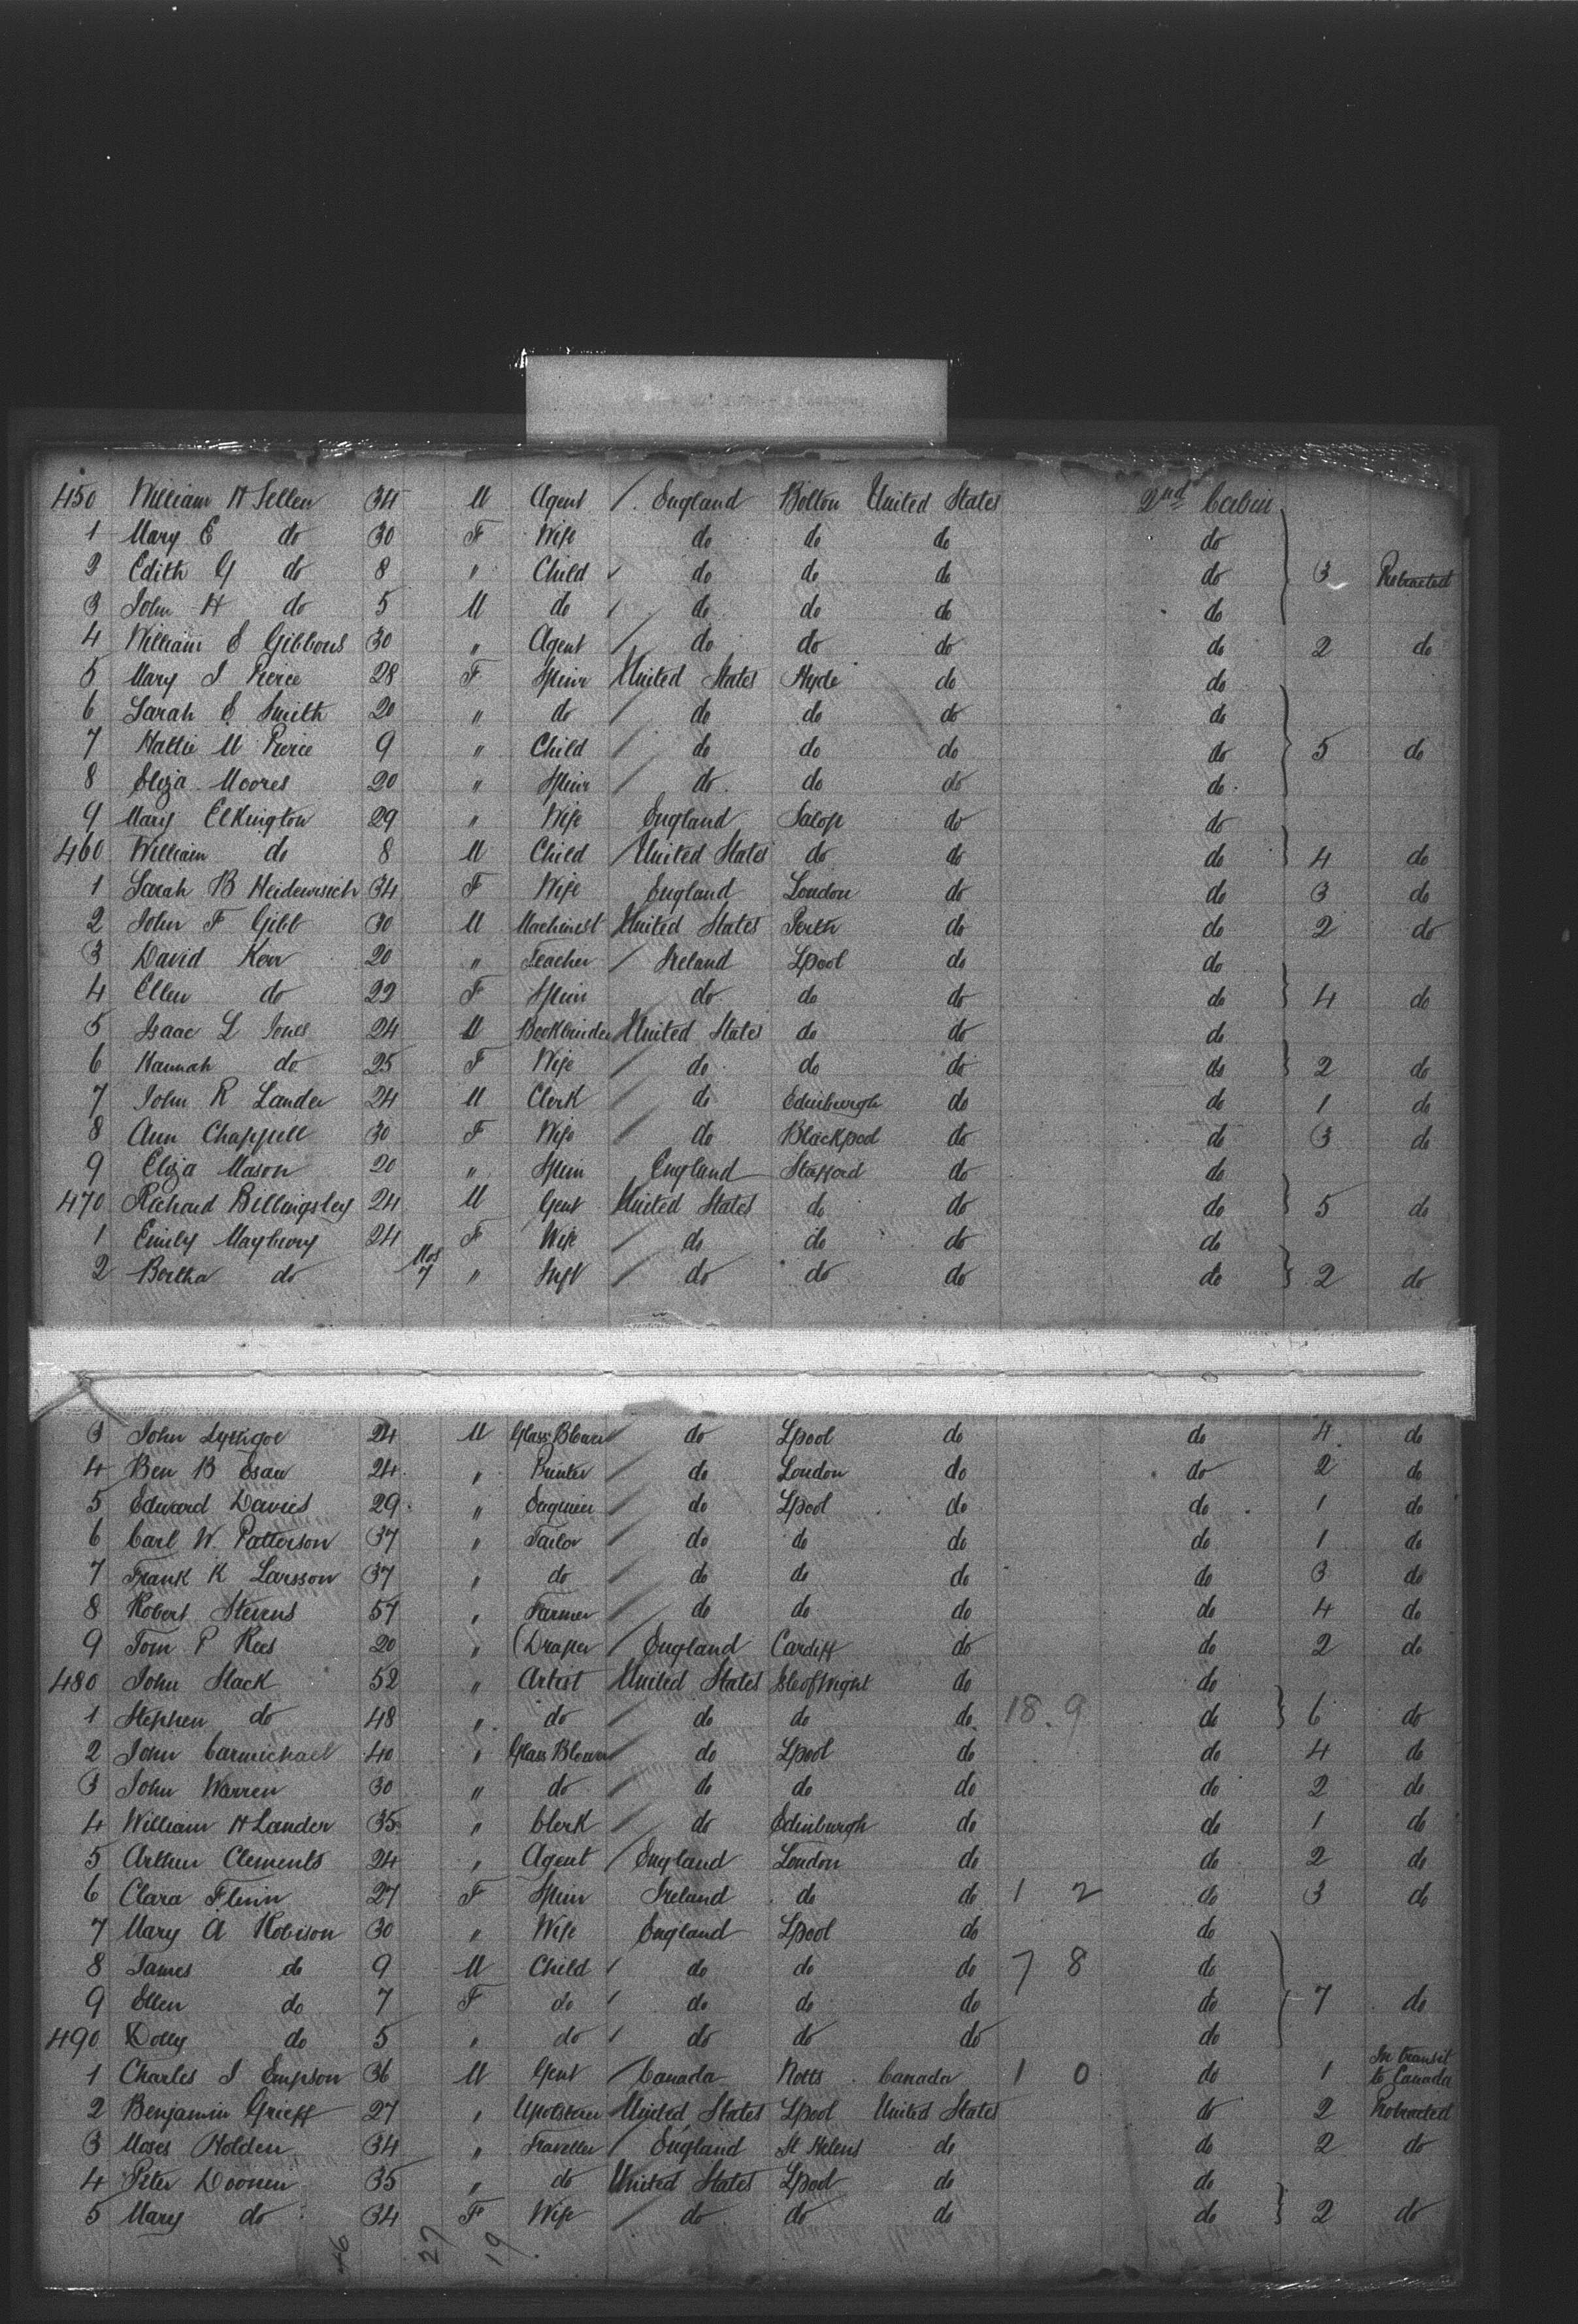 450 William H Sellen 34 M Agent / England Bolton United States 2nd Cabin
1 Mary E do 30 F Wife do do do do
2 Edith G do 8 " Child ✓ do do do do 3 Protracted
3 John H do 5 M do / do do do do
4 William E Gibbons 30 " Agent / do do do do 2 do
5 Mary J Pierce 28 F Spinr United States Hyde do do
6 Sarah E Smith 20 " do / do do do do
7 Hattie M Pierce 9 " Child / do do do do 5 do
8 Eliza Moores 20 " Spinr / do do do do
9 Mary Elkington 29 " Wife England Salop do do
460 William do 8 M Child / United States do do do 4 do
1 Sarah B 34 F Wife England London do do 3 do
2 John F Gibb 30 M Machinist United States Perth do do 2 do
3 David Kerr 20 " Teacher / Ireland Lpool do do
4 Ellen do 22 F Spin do do do do 4 do
5 Isaac L Jones 24 M Bookbinder United States do do do
6 Hannah do 25 F Wife / do do do do 2 do
7 John R Lander 24 M Clerk / do Edinburgh do do 1 do
8 Ann Chappell 30 F Wife / do Blackpool do do 3 do
9 Eliza Mason 20 " Spin England Stafford do do
470 Richard Billingsley 24 M Gent United States do do do 5 do
1 Emily Mayberry 24 F Wife / do do do do
2 Bertha do Mos 7 " Inft / do do do do 2 do
3 John Lythgoe 24 M Glass Blower do Lpool do do 4 do
4 Ben B Esaw 24 " Printer / do London do do 2 do
5 Edward Davies 29 " Engineer / do Lpool do do 1 do
6 Carl W. Patterson 37 " Tailor / do do do do 1 do
7 Frank K Larsson 37 " do / do do do do 3 do
8 Robert Stevens 57 " Farmer / do do do do 4 do
9 Tom P Rees 20 " Draper / England Cardiff do do 2 do
480 John Slack 52 " Artist United States Isle of Wight do do
1 Stephen do 48 " do / do do do 18.9 do 6 do
2 John Carmichael 40 " Glass Blower do Lpool do do 4 do
3 John Warren 30 " do / do do do do 2 do
4 William H Lander 35 " Clerk / do Edinburgh do do 1 do
5 Arthur Clements 24 " Agent / England London do do 2 do
6 Clara Flinn 27 F Spin Ireland do do 1 2 do 3 do
7 Mary A Robison 30 " Wife England Lpool do do
8 James do 9 M Child / do do do 7 8 do
9 Ellen do 7 F do / do do do do 7 do
490 Dolly do 5 " do / do do do do
1 Charles J Empson 36 M Gent / Canada Notts Canada 1 0 do 1 In transit to Canada
2 Benjamin Grieff 27 " Upholsterer United States Lpool United States do 2 Protracted
3 Moses Holden 34 " Traveller / England St Helens do do 2 do
4 Peter Doonen 35 " do United States Lpool do do
5 Mary do 34 F Wife / do do do do 2 do
27 19